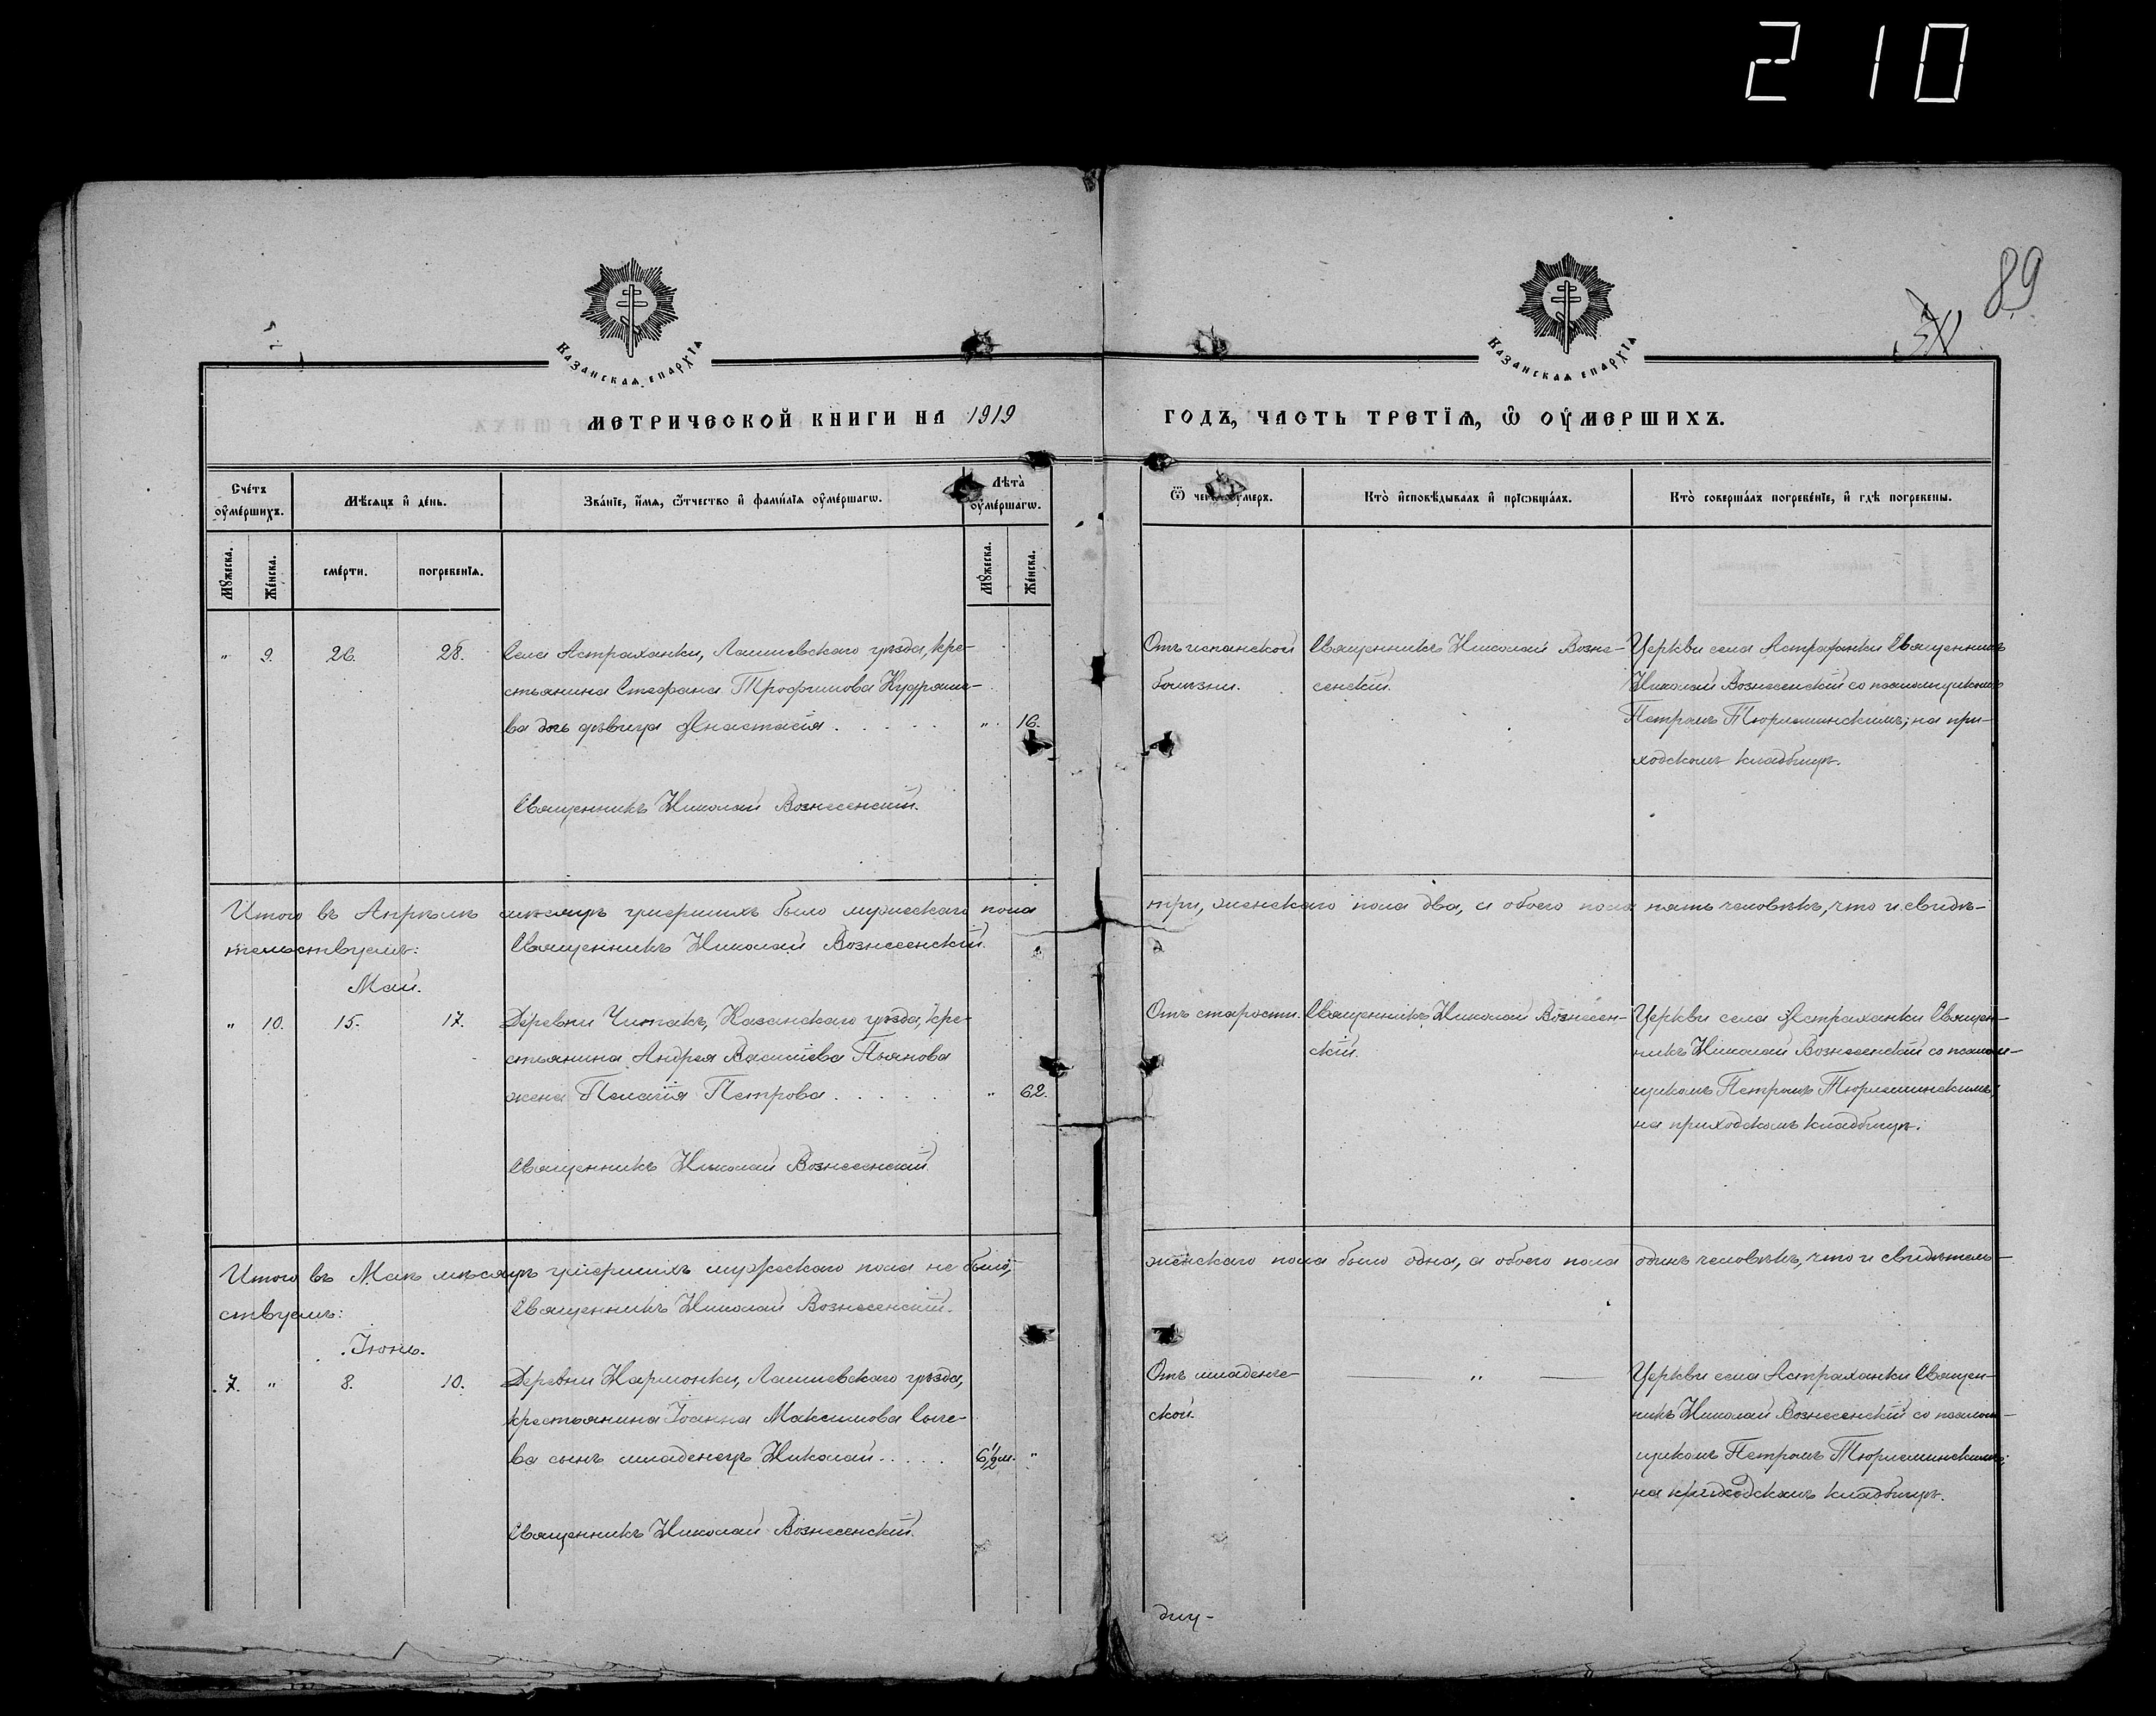 210
89
Казанская епархїя
Казанская епархїя
МЕТРИЧЕСКОЙ КНИГИ НА 1919
ГОДЪ, ЧАСТЬ ТРЕТЇѦ, Ѡ ОУМЕРШИХЪ.
Счетъ оумершихъ.
Мѣсяцъ и день.
Званїе, имя, ѿчество и фамилїя оумершагѡ.
Лѣта оумершагѡ.
Ѿ чегѡ оумеръ.
Кто исповѣдывалъ и прїѡбщалъ.
Кто совершалъ погребенїе, и гдѣ погребены.
Мꙋжеска.
Женска.
смерти.
погребенїя.
Мꙋжеска.
Женска.
" 9. 26. 28. Села Астраханки, Лаишевскаго уѣзда, кре-
стьянина Стефана Трофимова Кудряше-
ва дочь дѣвица Анастасія . . . . . " 16.
Священникъ Николай Вознесенскій.
Отъ испанской
болѣзни.
Священникъ Николай Возне-
сенскій.
Церкви села Астраханки Священникъ
Николай Вознесенскій со псаломщикомъ
Петромъ Тюрлеминскимъ; на при-
ходскомъ кладбищѣ.
Итого въ Апрѣлѣ мѣсяцѣ умершихъ было мужескаго пола три, женскаго пола два, а обоего пола пять человѣкъ, что и свидѣ-
тельствуемъ: Священникъ Николай Вознесенскій.
Май.
" 10. 15. 17. Деревни Чипакъ, Казанскаго уѣзда, кре-
стьянина Андрея Василіева Пьянова
жена Пелагія Петрова . . . . . " 62.
Священникъ Николай Вознесенскій
Отъ старости.
Священникъ Николай Вознесен-
скій.
Церкви села Астраханки Священ-
никъ Николай Вознесенскій со псалом-
щикомъ Петромъ Тюрлеминскимъ;
на приходскомъ кладбищѣ.
Итого въ Маѣ мѣсяцѣ умершихъ мужескаго пола не было, женскаго пола было одна, а обоего пола одинъ человѣкъ, что и свидѣтель-
ствуемъ: Священникъ Николай Вознесенскій.
Іюнь.
7. " 8. 10. Деревни Нармонки, Лаишевскаго уѣзда,
крестьянина Іоанна Максимова
ва сынъ младенецъ Николай . . . . . 6 1/2 м. "
Священникъ Николай Вознесенскій.
Отъ младенче-
ской.
— " —
Церкви села Астраханки Священ-
никъ Николай Вознесенскій со псалом-
щикомъ Петромъ Тюрлеминскимъ;
на приходскомъ кладбищѣ.